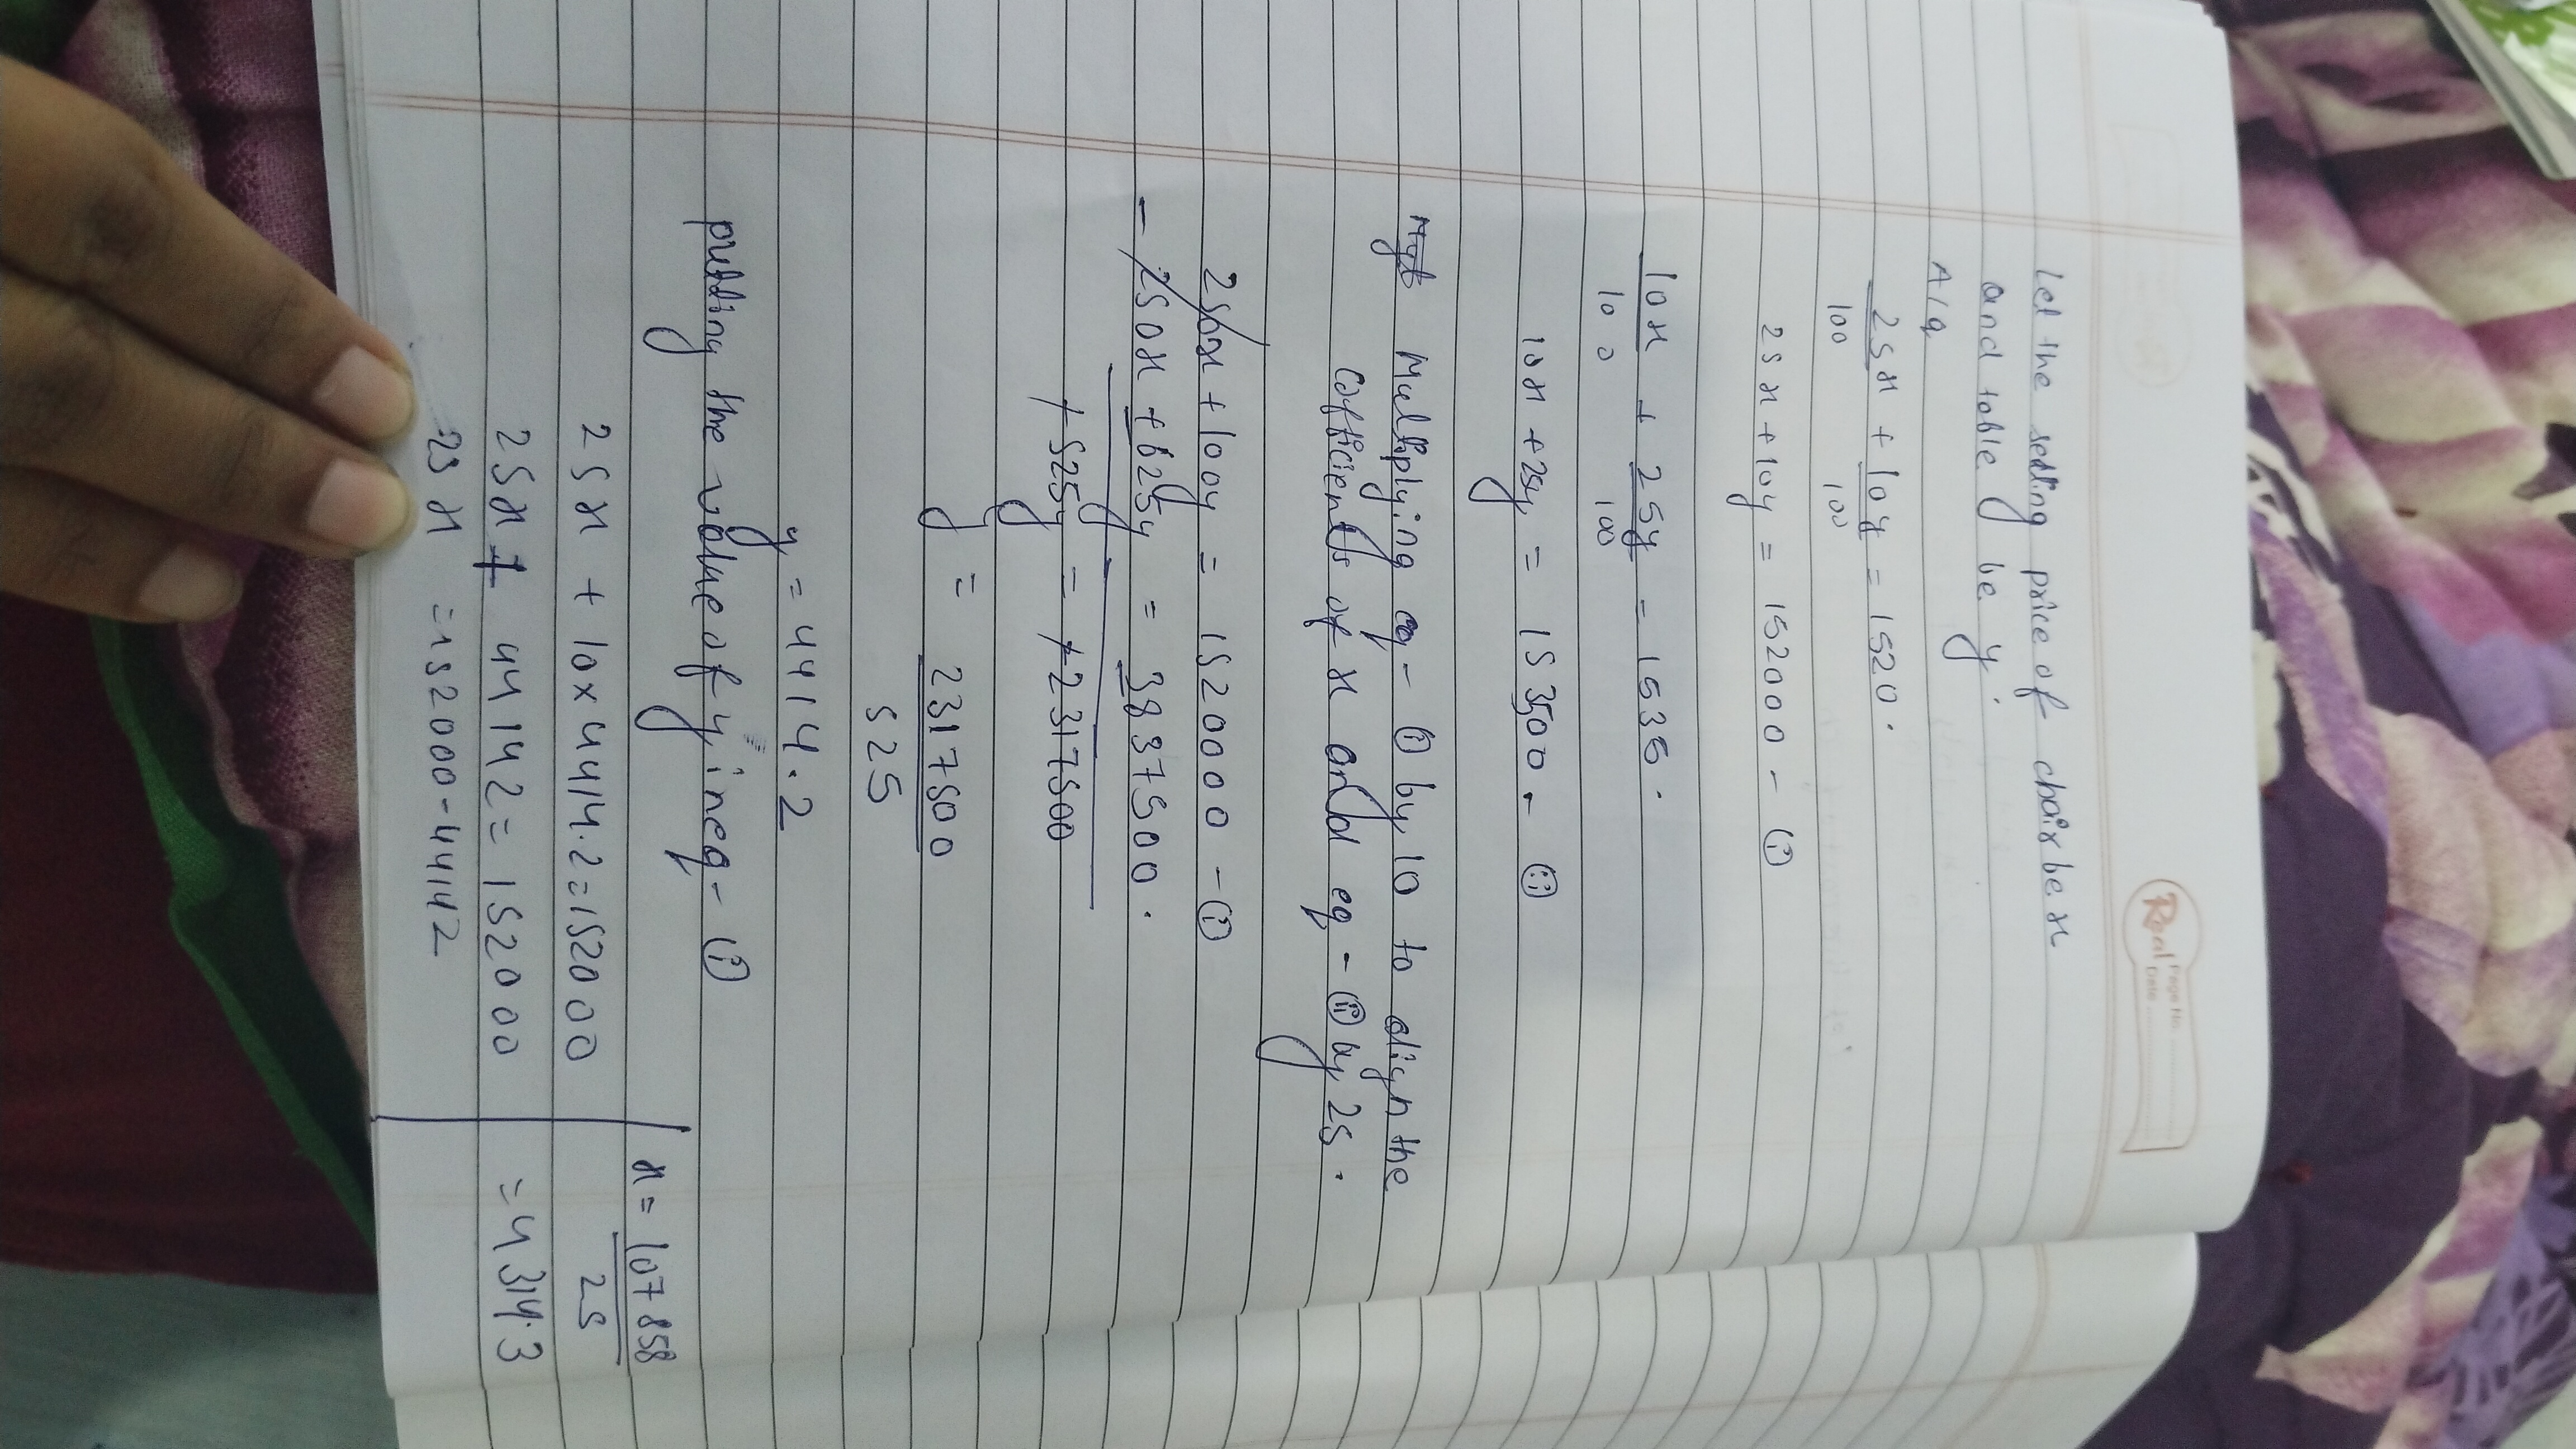 Real
Page No.
Date
Let the selling price of chair be x
and table y be y.
A/q
25x/100 + 10y/100 = 1520.
25x + 10y = 152000 - (i)
10x/100 + 25y/100 = 1535.
10x + 25y = 153500. - (ii)
Multiplying eq - (i) by 10 to align the
cofficients of x and eq - (ii) by 25.
250x + 100y = 1520000 - (i)
- 250x + 625y = 3837500.
+ 525y = + 2317500
y = 2317500/525
y = 4414.2
putting the value of y in eq - (i)
25x + 10x4414.2 = 152000
25x + 44142 = 152000
25x = 152000 - 44142
x = 107858/25
= 4314.3